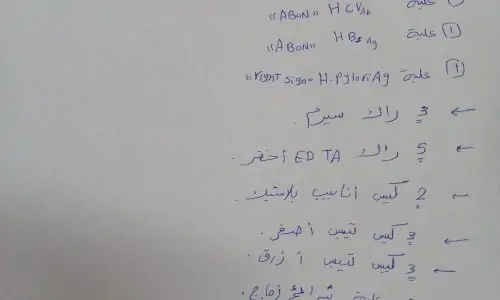 ① علبة HCV Ab «ABON»
① علبة HBs Ag «ABON»
① علبة H.Pylori Ag «right sign»
← 3 راك سيرم.
← 5 راك EDTA أخضر.
← 2 كيس أنابيب بلاستيك.
← 3 كيس تيبس أصفر.
← 3 كيس تيبس أزرق.
زجاج.